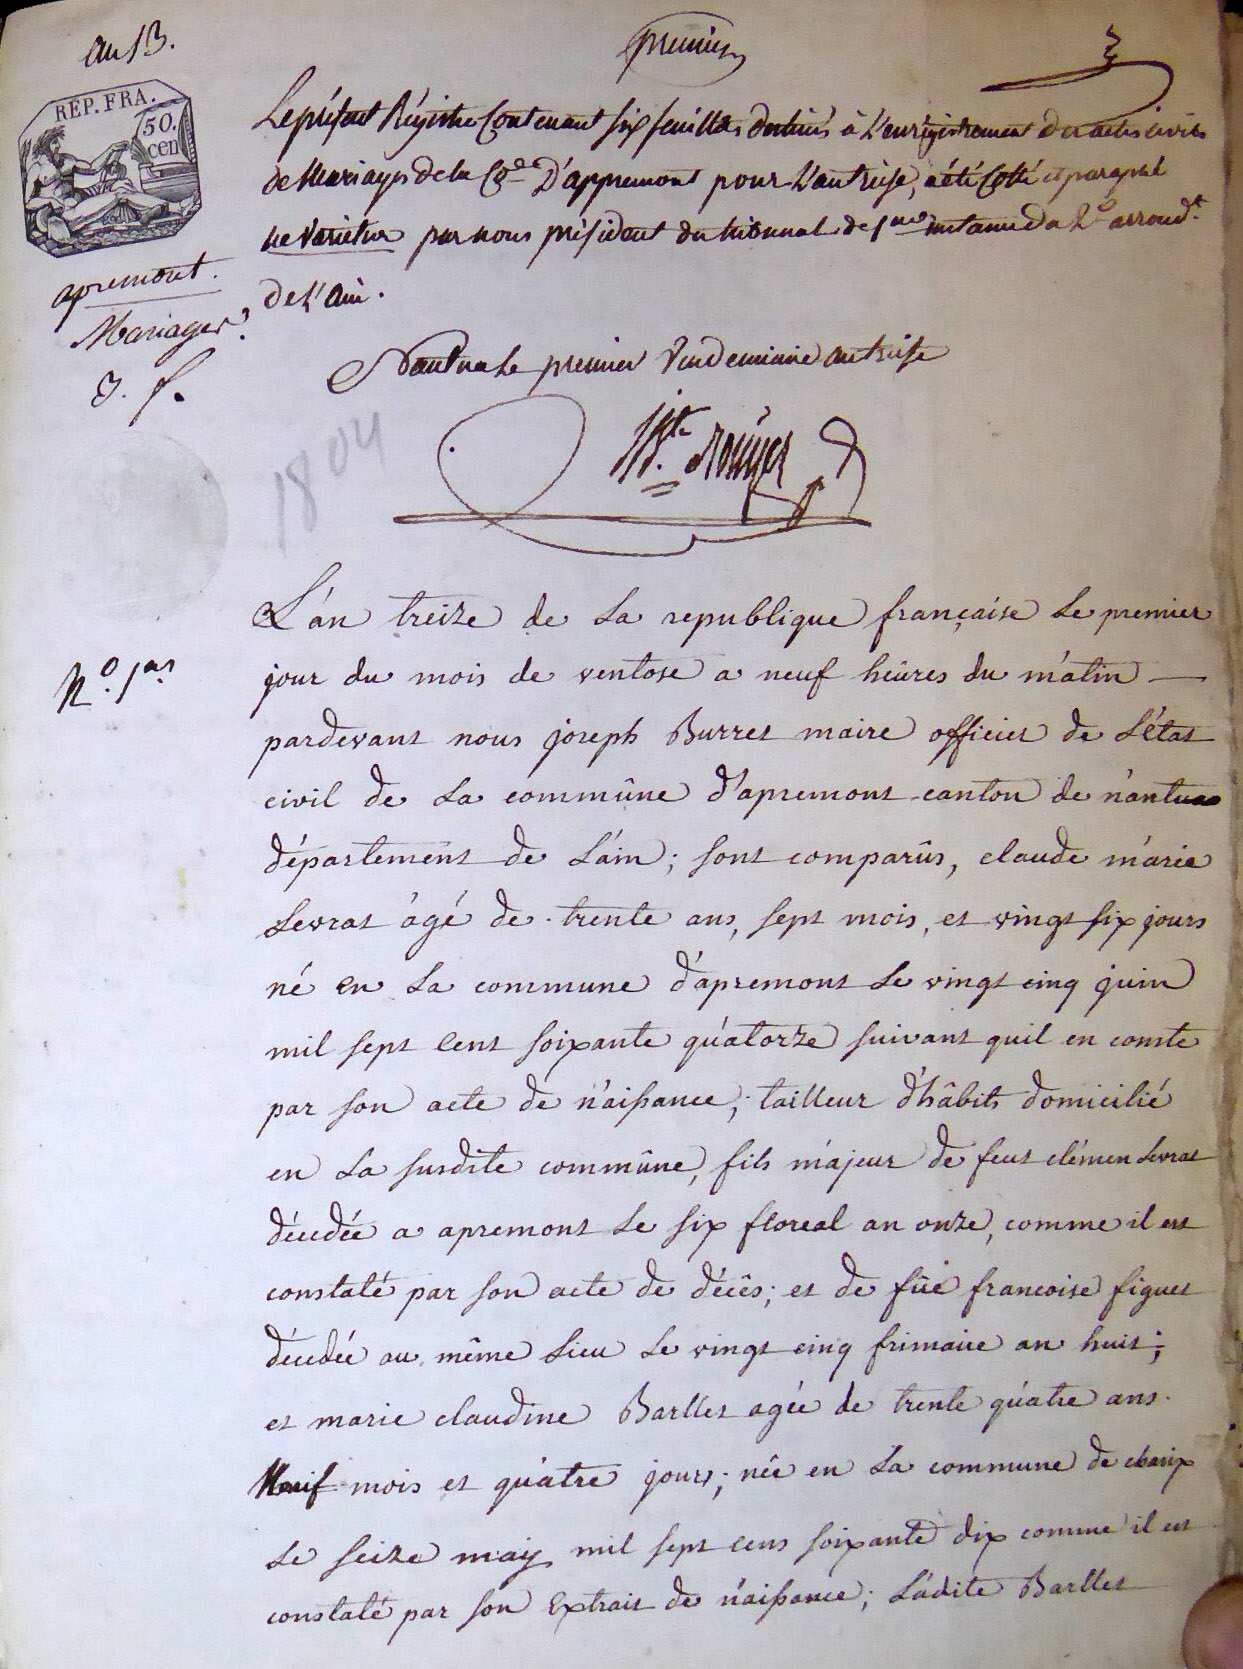 an 13.
premier
REP. FRA.
50.
cen
Le présent Régistre Contenant six feuilles destinés à L'enrégistrement des actes civils
de Mariages de la Cne D'appremont pour L'antreise, a été Cotté et paraphé
ne varietur par nous président du tribunal de 1ere instance du 2e arrondt
de L'ain.
apremont.
Mariages
3. f.
Nantua le premier Vendemiaire an treise
1804
L'an treize de La republique française Le premier
N.o 1er
jour du mois de ventose a neuf heûres du matin
pardevant nous joseph Burret maire officier de L'état
civil de La commûne d'apremont canton de nantua
département de L'ain; sont comparûs, claude marie
Levrat âgé de trente ans, sept mois, et vingt six jours
né en La commune d'apremont Le vingt cinq juin
mil sept cent soixante quatorze suivant quil en conste
par son acte de naissance; tailleur d'hâbits domicilié
en La susdite commûne, fils majeur de feut clémen Levrat
décedée a apremont Le six floreal an onze, comme il est
constaté par son acte de décês; et de fûe francoise figuet
décedée au même Lieu Le vingt cinq frimaire an huit;
et marie claudine Barllet agée de trente quatre ans.
Neuf mois et quatre jours; née en La commune de charix
Le seize may mil sept cens soixante dix comme il est
constaté par son Extrait de naissance; Ladite Barllet